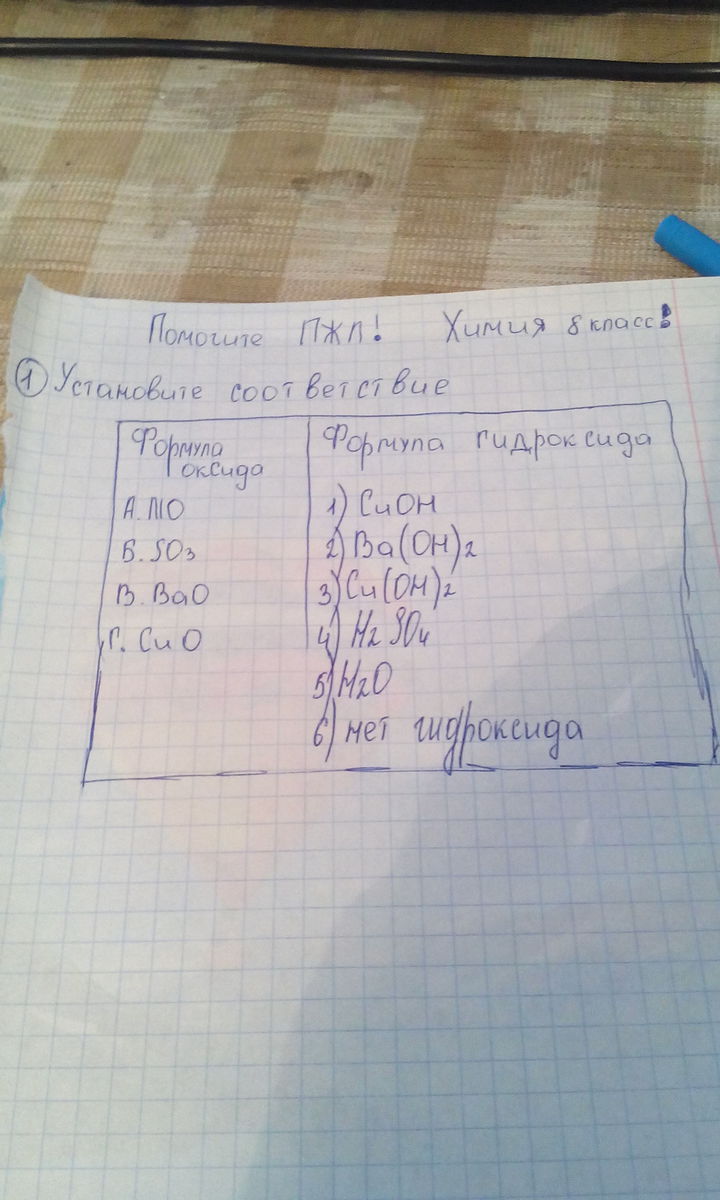 Помогите ПЖЛ! Химия 8 класс!
1 Установите соответствие
Формула оксида
Формула гидроксида
А. NO
Б. SO3
В. BaO
Г. CuO
1) CuOH
2) Ba(OH)2
3) Cu(OH)2
4) H2SO4
5) H2O
6) нет гидроксида